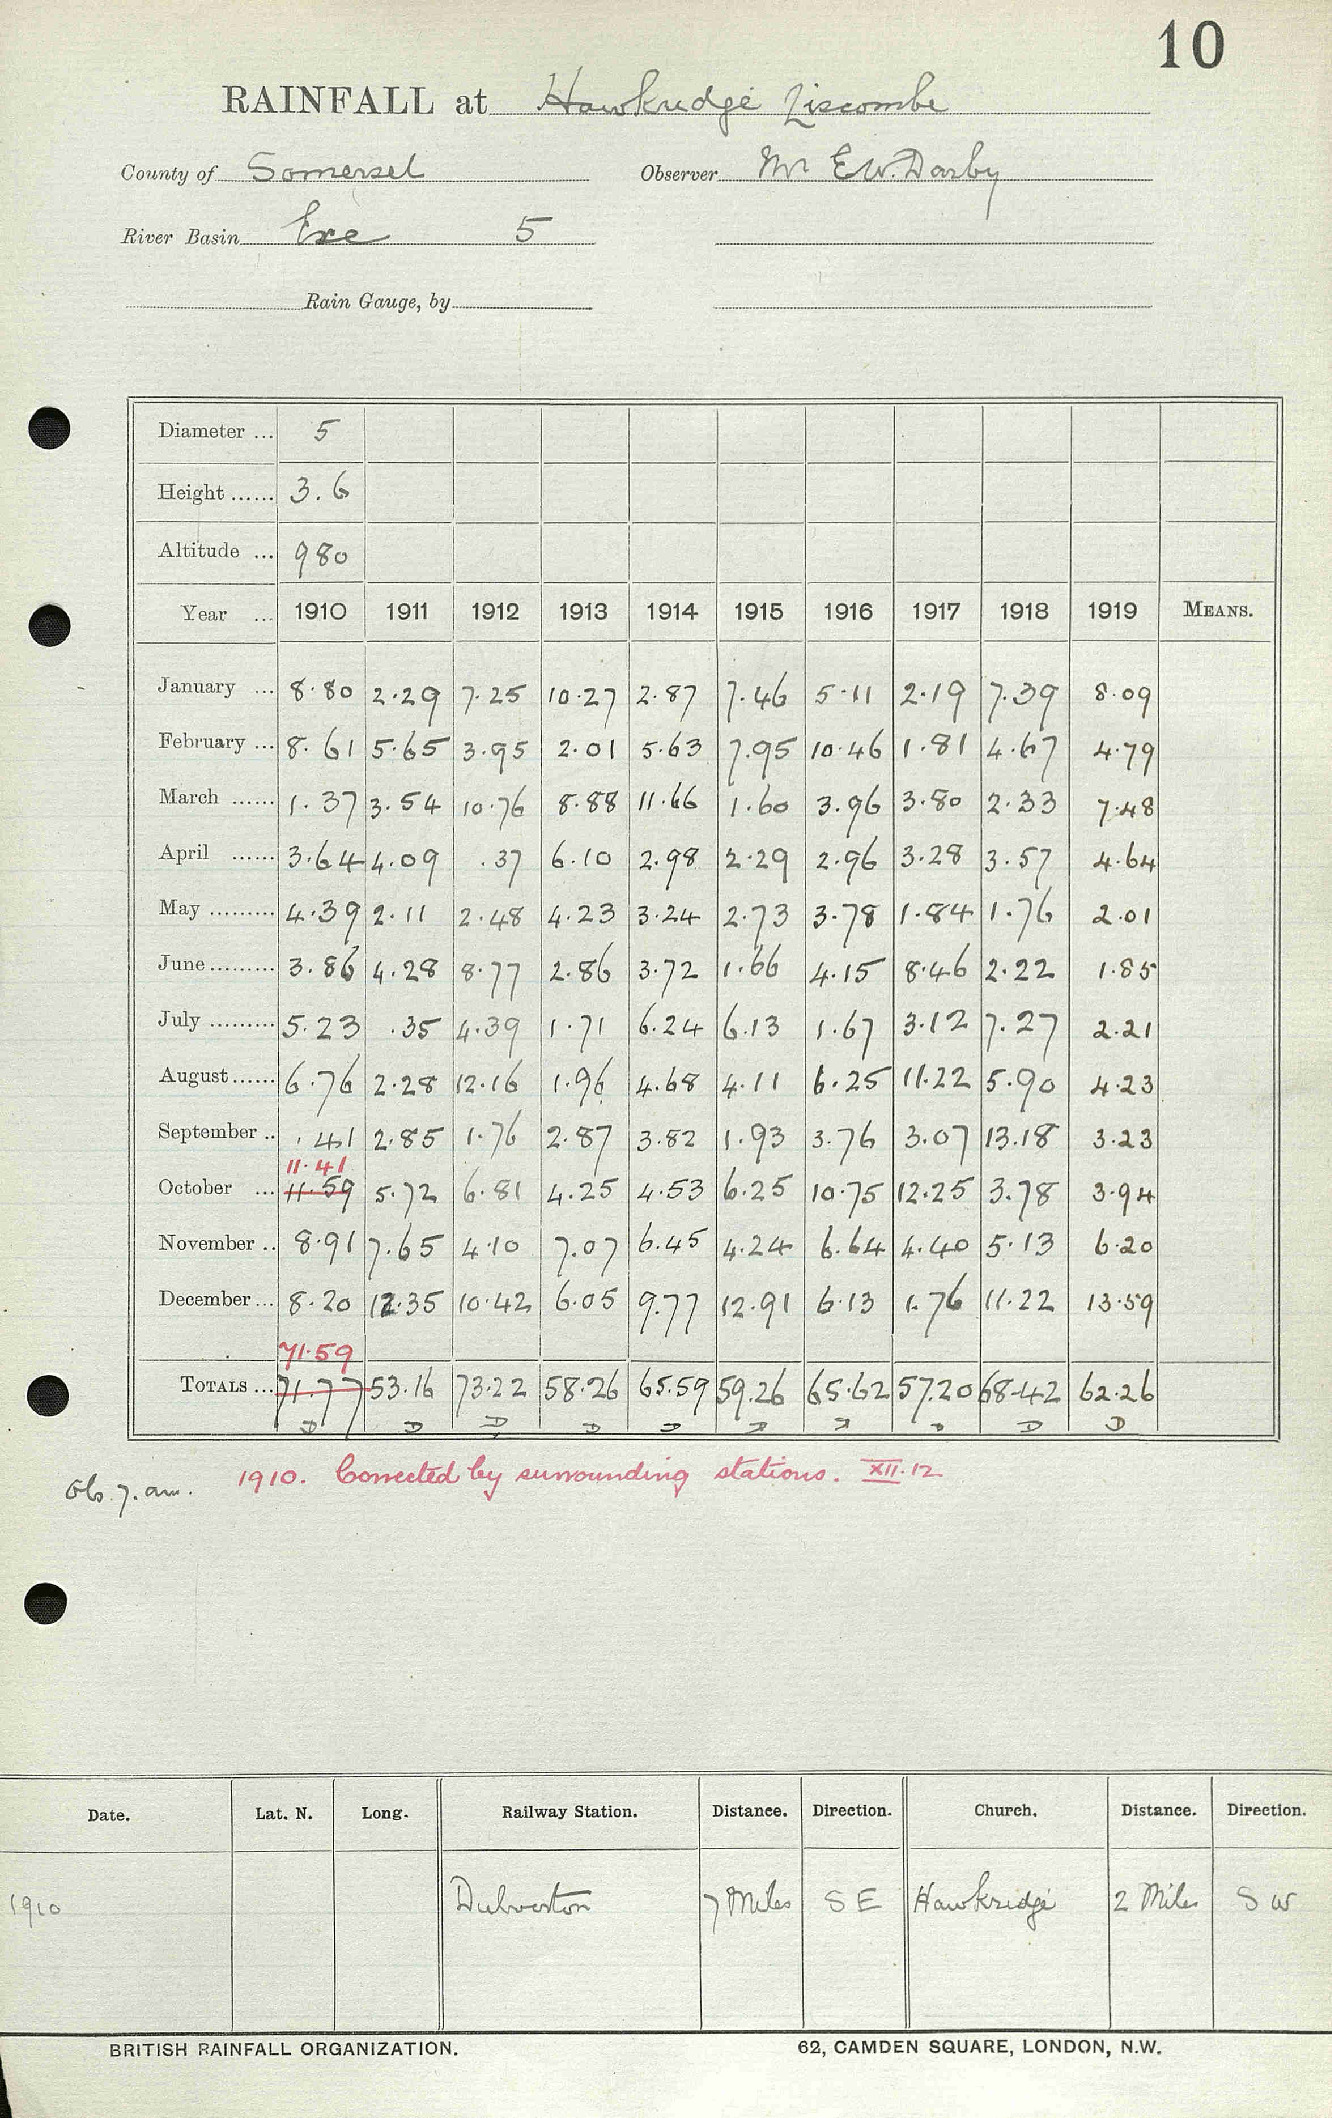 10
RAINFALL at Hawkridge Liscombe
County of Somerset Observer Mr E.W. Darby
River Basin Exe 5
Rain Gauge, by
Diameter ... 5
Height ...... 3.6
Altitude ... 980
Year ... 1910 1911 1912 1913 1914 1915 1916 1917 1918 1919 MEANS.
January ... 8.80 2.29 7.25 10.27 2.87 7.46 5.11 2.19 7.39 8.09
February ... 8.61 5.65 3.95 2.01 5.63 7.95 10.46 1.81 4.67 4.79
March ...... 1.37 3.54 10.76 8.88 11.66 1.60 3.96 3.80 2.33 7.48
April ...... 3.64 4.09 .37 6.10 2.98 2.29 2.96 3.28 3.57 4.64
May ......... 4.39 2.11 2.48 4.23 3.24 2.73 3.78 1.84 1.76 2.01
June ......... 3.86 4.28 8.77 2.86 3.72 1.66 4.15 8.46 2.22 1.85
July ......... 5.23 .35 4.39 1.71 6.24 6.13 1.67 3.12 7.27 2.21
August ...... 6.76 2.28 12.16 1.96 4.68 4.11 6.25 11.22 5.90 4.23
September .. .41 2.85 1.76 2.87 3.82 1.93 3.76 3.07 13.18 3.23
11.41
October ... 11.59 5.72 6.81 4.25 4.53 6.25 10.75 12.25 3.78 3.94
November .. 8.91 7.65 4.10 7.07 6.45 4.24 6.64 4.40 5.13 6.20
December ... 8.20 12.35 10.42 6.05 9.77 12.91 6.13 1.76 11.22 13.59
71.59
TOTALS ... 71.77 53.16 73.22 58.26 65.59 59.26 65.62 57.20 68.42 62.26
D D D D D D D D D D
1910. Corrected by surrounding stations. XII.12
Ob. 7. am.
Date. Lat. N. Long. Railway Station. Distance. Direction. Church. Distance. Direction.
1910 Dulverton 7 Miles S E Hawkridge 2 Miles S W
BRITISH RAINFALL ORGANIZATION. 62, CAMDEN SQUARE, LONDON, N.W.